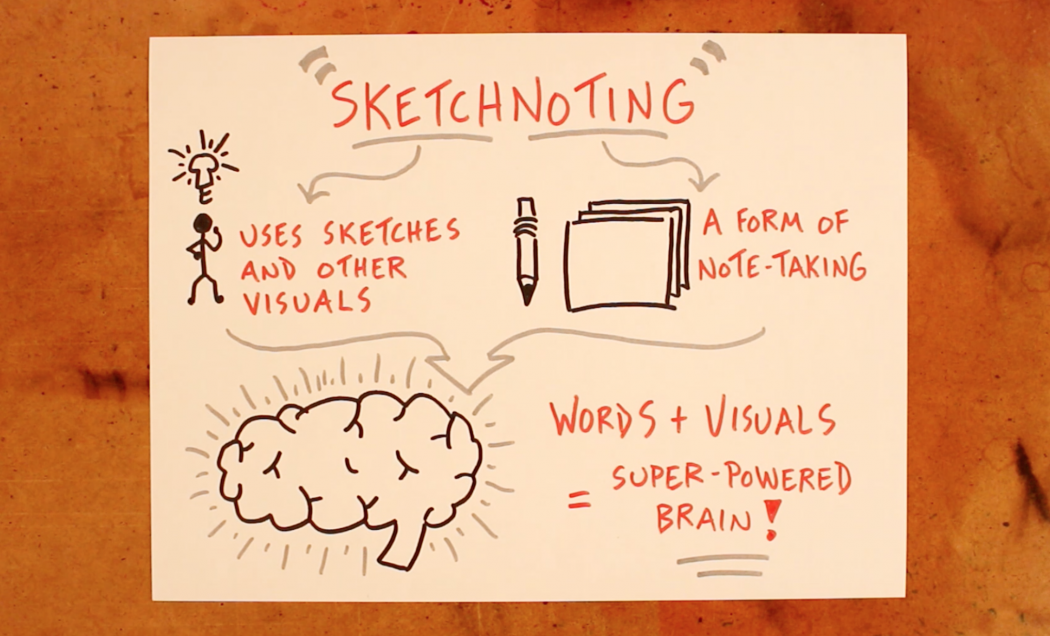 SKETCHNOTING
USES SKETCHES
AND OTHER
VISUALS
A FORM OF
NOTE-TAKING
WORDS + VISUALS
= SUPER-POWERED
BRAIN!